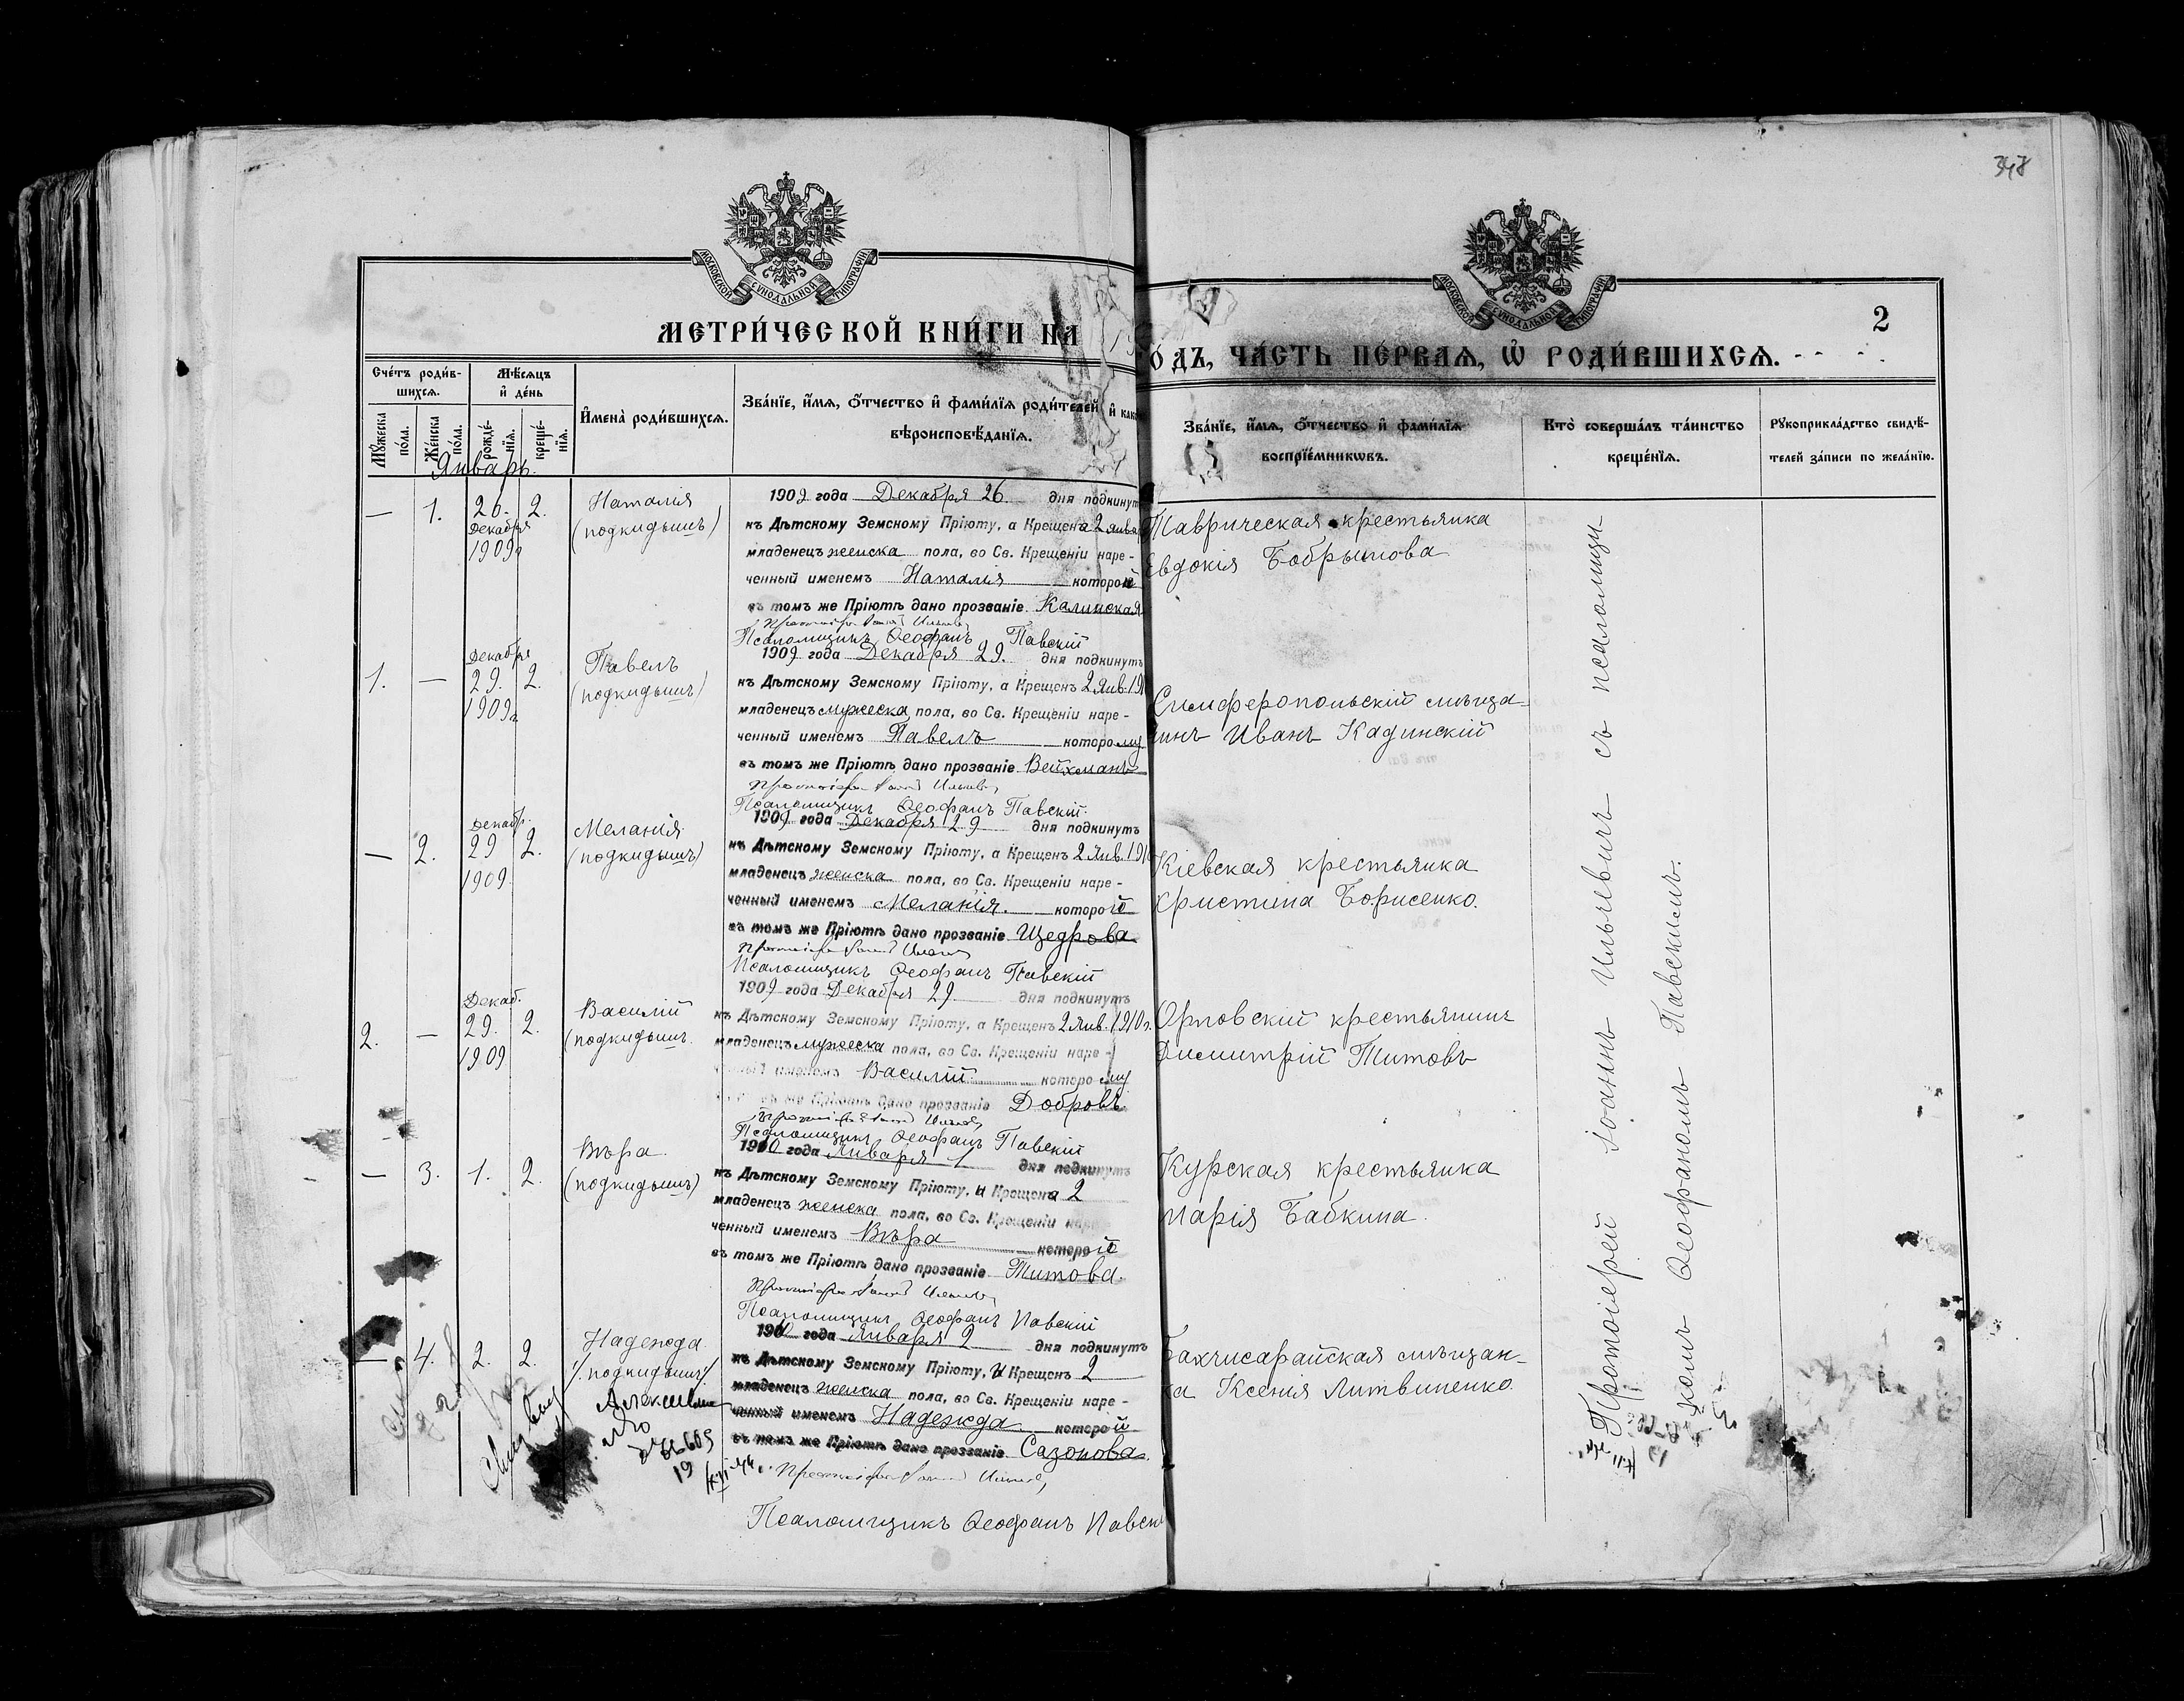 348
МОСКОВСКОЙ СѴНОДАЛЬНОЙ ТИПОГРАФІИ
МОСКОВСКОЙ СѴНОДАЛЬНОЙ ТИПОГРАФІИ
2
МЕТРИ́ЧЕСКОЙ КНИ́ГИ НА
ОДЪ, ЧА́СТЬ ПЕ́РВАЯ, Ѡ҆ РОДИ́ВШИХСЯ.
Сче́тъ роди́в-
шихся.
Мѣ́сяцъ
и҆ де́нь
Мꙋ́жеска по́ла.
Же́нска по́ла.
рожде́-
нїя.
креще́-
нїя.
И҆мена̀ роди́вшихся.
Зва́нїе, и҆́мя, ѻ҆́тчество и҆ фами́лїя роди́телей, и҆ како
вѣроисповѣ́данїя.
Зва́нїе, и҆́мя, ѻ҆́тчество и҆ фами́лїя
воспрїе́мникѡвъ.
Кто̀ соверша́лъ та́инство
креще́нїя.
Рꙋкоприкла́дство свидѣ́-
телей за́писи по жела́нїю.
Январь.
— 1. 26. 2.
Декабря
1909г
Наталія
(подкидышъ)
1909 года Декабря 26. дня подкинут
къ Дѣтскому Земскому Пріюту, а Крещена 2 янва
младенецъ женска пола, во Св. Крещеніи наре-
ченный именемъ Наталія которой
въ томъ же Пріютѣ дано прозваніе Калинская
Псаломщикъ Ѳеофанъ Павскій
Таврическая крестьянка
Евдокія Бобрышова
1. — Декабря
29. 2.
1909г
Павелъ
(подкидышъ)
1909 года Декабря 29. дня подкинутъ
къ Дѣтскому Земскому Пріюту, а Крещенъ 2 Янв. 19
младенецъ мужеска пола, во Св. Крещеніи наре-
ченный именемъ Павелъ которому
въ томъ же Пріютѣ дано прозваніе Вейхманъ
Псаломщикъ Ѳеофанъ Павскій.
Симферопольскій мѣща-
нинъ Иванъ Кадинскій
— 2. Декабр.
29 2.
1909.
Меланія
(подкидышъ)
1909 года Декабря 29 дня подкинутъ
къ Дѣтскому Земскому Пріюту, а Крещенъ 2 Янв. 191
младенецъ женска пола, во Св. Крещеніи наре-
ченный именемъ Меланія. которой
въ томъ же Пріютѣ дано прозваніе Щедрова
Псаломщикъ Ѳеофанъ Павскій
Кіевская крестьянка
Христина Борисенко.
2. — Декаб.
29. 2.
1909
Василій
(подкидышъ
1909 года Декабря 29. дня подкинутъ
къ Дѣтскому Земскому Пріюту, а Крещенъ 2 Янв. 1910г.
младенецъ мужеска пола, во Св. Крещеніи наре-
именемъ Василій. которому
же Пріютѣ дано прозваніе Добровъ
Псаломщикъ Ѳеофанъ Павскій
Орловскій крестьянинъ
Димитрій Титовъ
— 3. 1. 2.
Вѣра
(подкидышъ)
1910 года Января 1 дня подкинутъ
къ Дѣтскому Земскому Пріюту, и Крещена 2
младенецъ женска пола, во Св. Крещеніи наре
ченный именемъ Вѣра которой
въ томъ же Пріютѣ дано прозваніе Титова.
Псаломщикъ Ѳеофанъ Павскій
Курская крестьянка
Марія Бабкина.
— 4. 2. 2.
Надежда
(подкидышъ)
1910 года Января 2 дня подкинутъ
къ Дѣтскому Земскому Пріюту, и Крещенъ 2
младенецъ женска пола, во Св. Крещеніи наре-
ченный именемъ Надежда которой
въ томъ же Пріютѣ дано прозваніе Сазонова
Псаломщикъ Ѳеофанъ Павскі
Бахчисарайская мѣщан-
ка Ксенія Литвиненко.
Протоіерей Іоаннъ Ильевичъ съ псаломщи-
комъ Ѳеофаномъ Павскимъ.